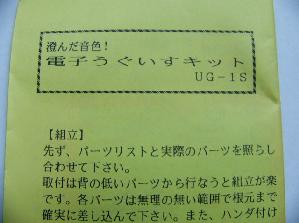 澄んだ音色!
電子うぐいすキット
UG-1S
【組立】
先ず、パーツリストと実際のパーツを照らし
合わせて下さい。
取付は背の低いパーツから行なうと組立が楽
です。各パーツは無理の無い範囲で根元まで
確実に差し込んで下さい。また、ハンダ付け